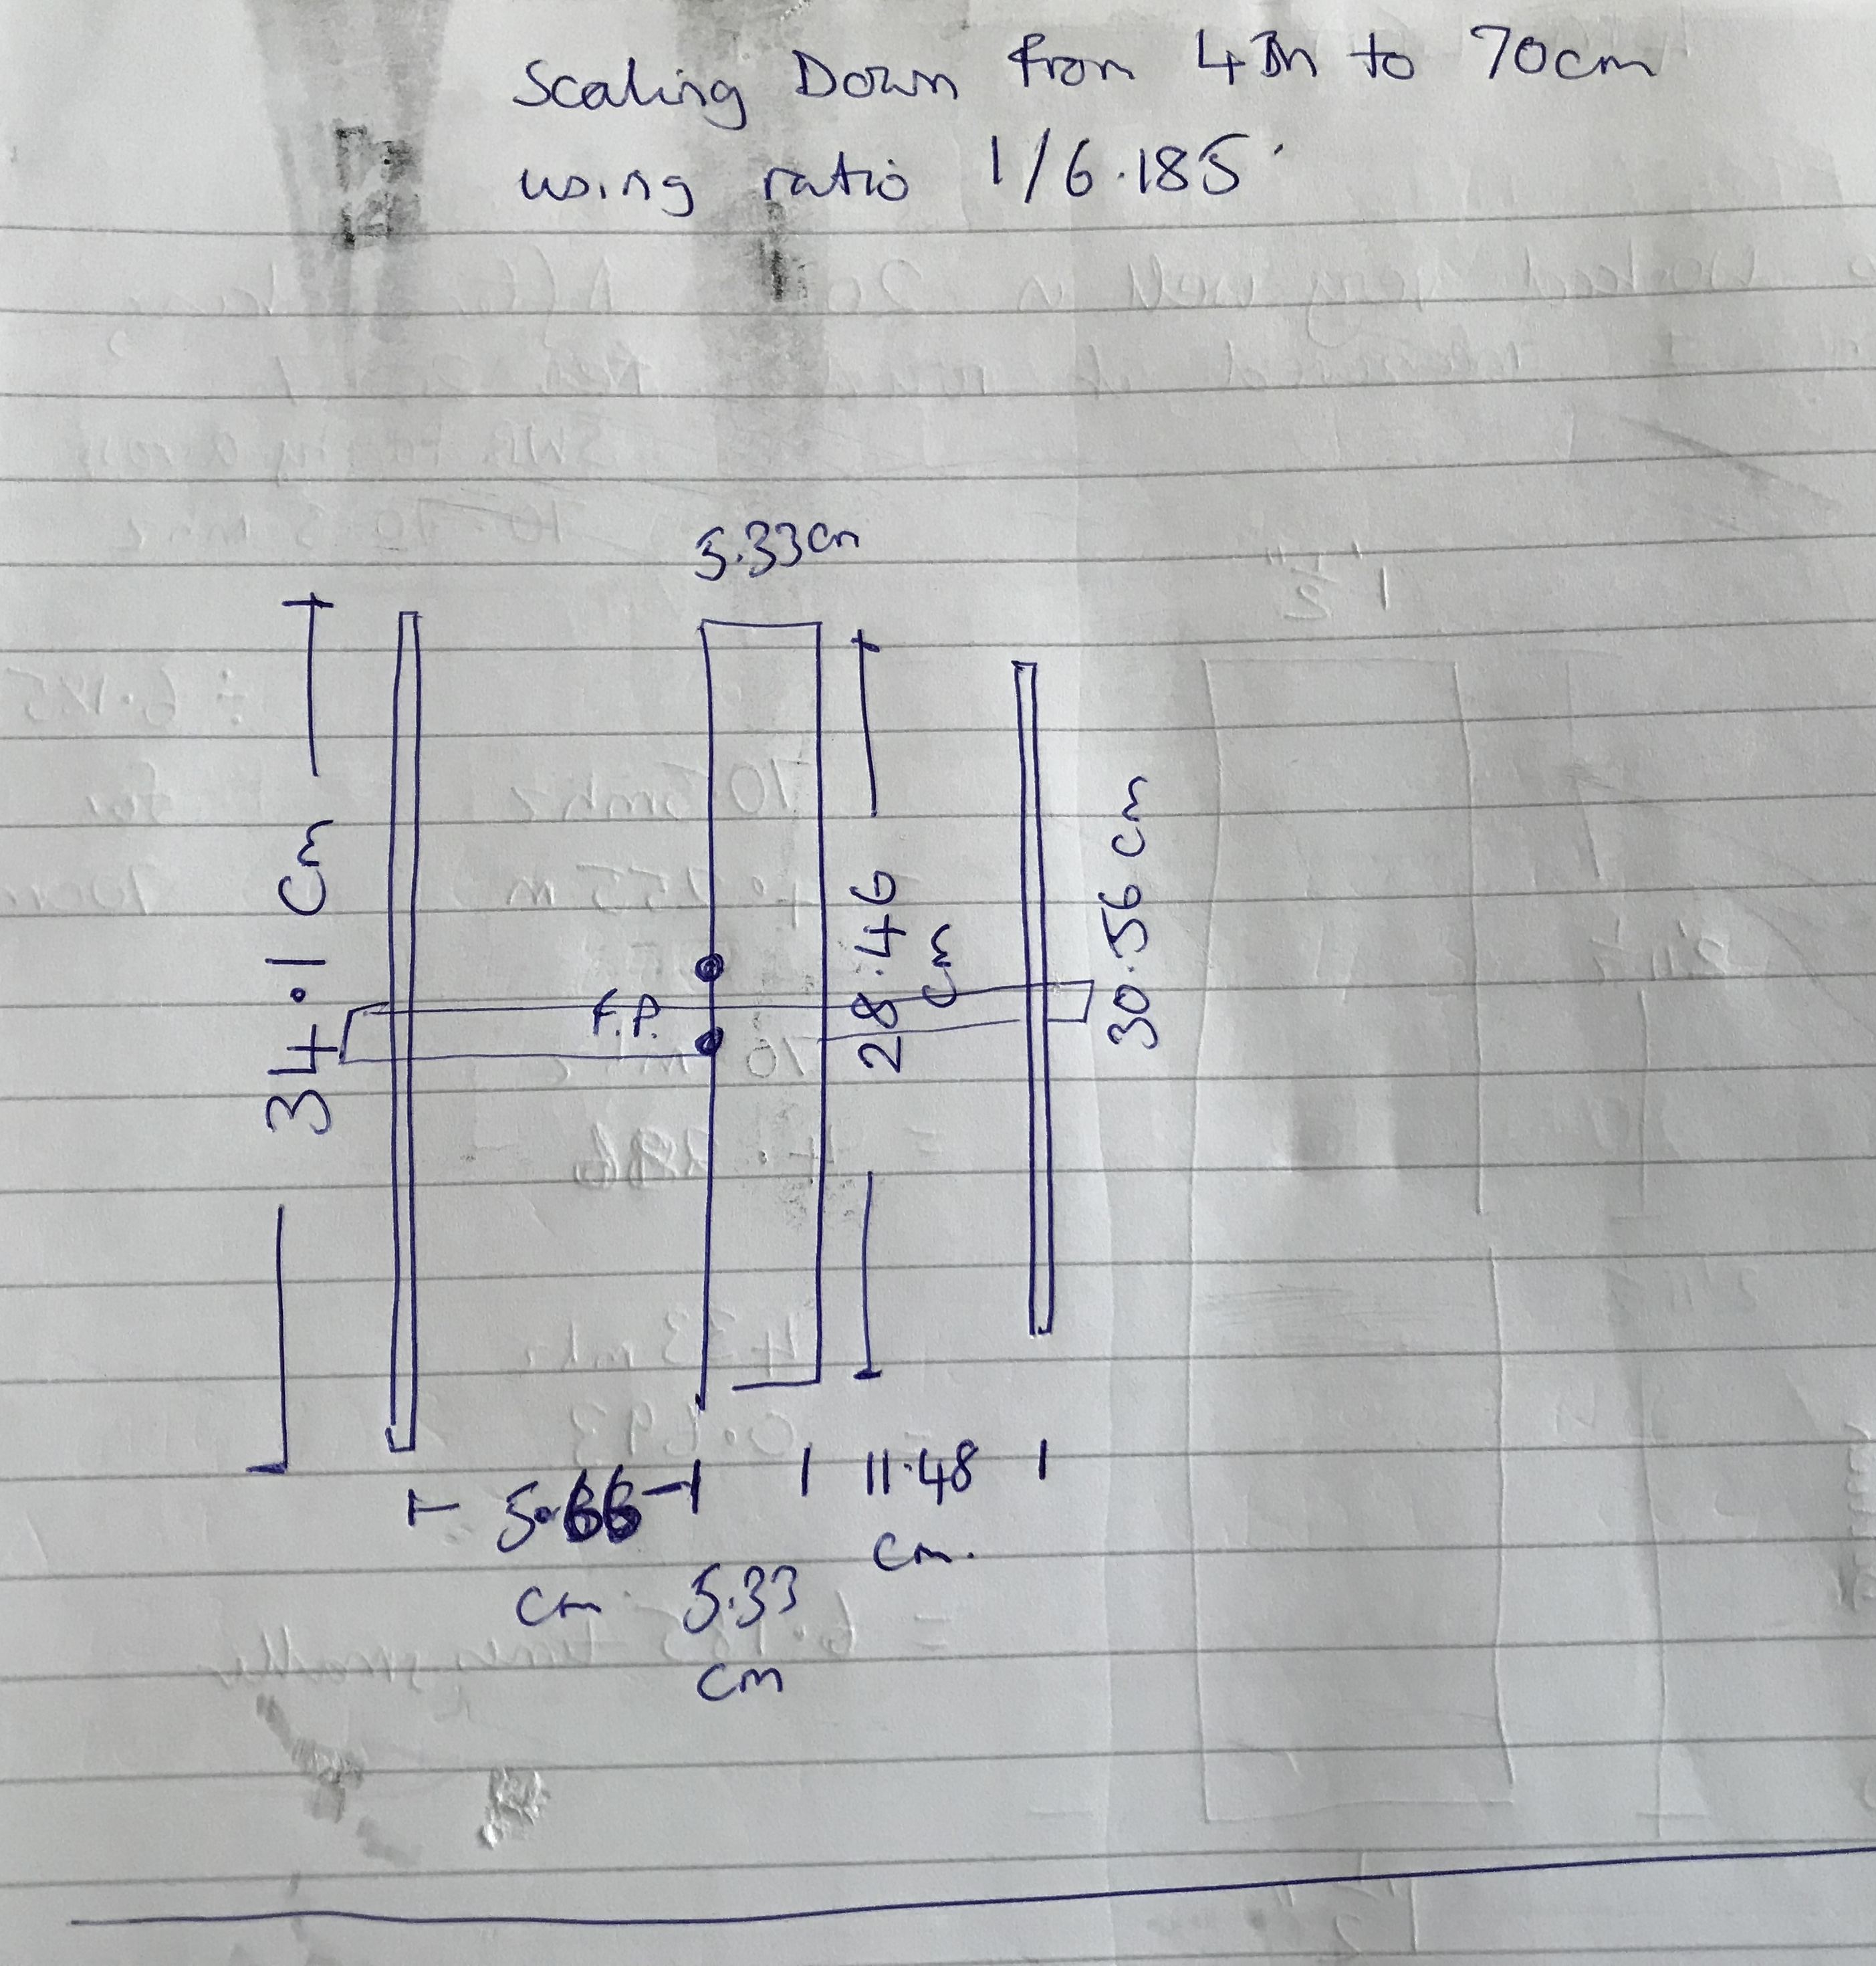 Scaling Down from 4m to 70cm
using ratio 1/6.185
5.33cm
34.1 cm
F.P.
28.46
cm
30.56 cm
5.66
cm
5.33
cm
11.48
cm.